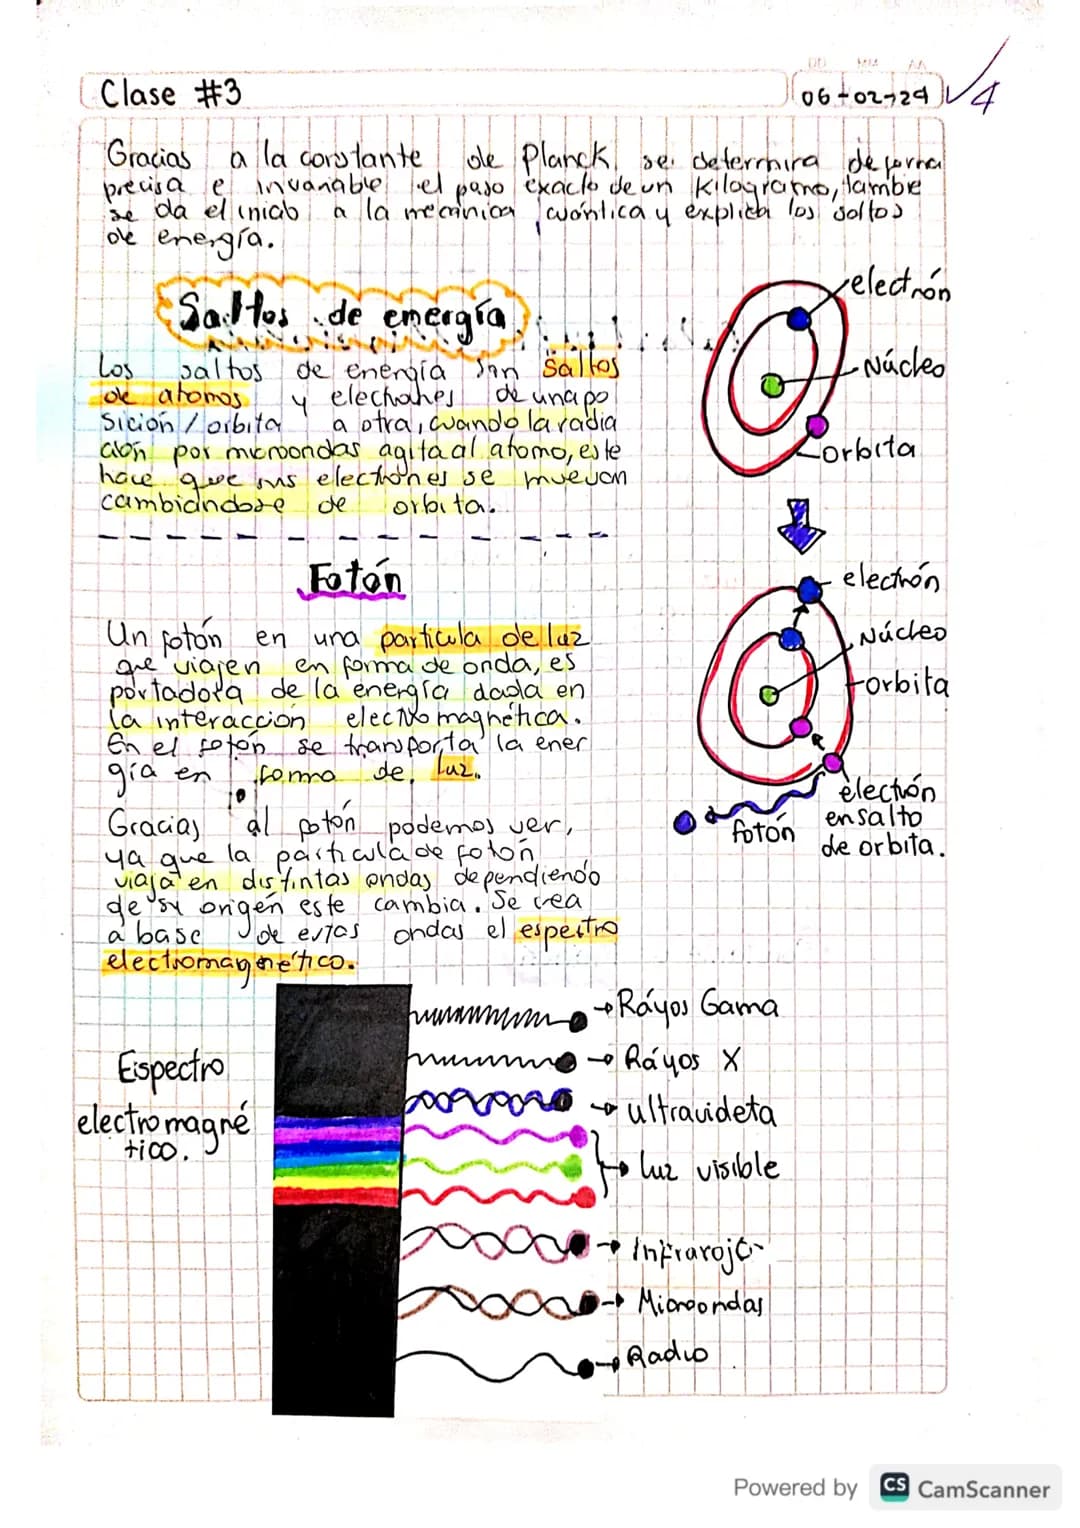 DD MM AA
Clase #3
06-02-24
4
Gracias a la constante de Planck, se determina de forma
precisa e invariable el paso exacto de un kilogramo, tambe
se da el inicio a la mecánica cuántica y explica los saltos
de energía.
Saltos de energía
Los saltos de energía son saltos
de atomos y electrones de una po
sición / orbita a otra, cuando la radia
ción por microondas agita al atomo, este
hace que sus electrones se muevan
cambiandose de orbita.
electrón
Núcleo
orbita
Fotón
Un fotón en una particula de luz
que viajen en forma de onda, es
portadora de la energía dada en
la interacción electromagnética.
En el fotón se transporta la ener
gía en forma de luz.
Gracias al fotón podemos ver,
ya que la particula de fotón
viaja en distintas ondas dependiendo
de su origen este cambia. Se crea
a base de estas ondas el espectro
electromagnético.
electrón
Núcleo
orbita
electrón
en salto
de orbita.
fotón
Espectro
electromagné
tico.
Ráyos Gama
Ráyos X
ultravideta
luz visible
Infrarojo
Microondas
Radio
Powered by CS CamScanner